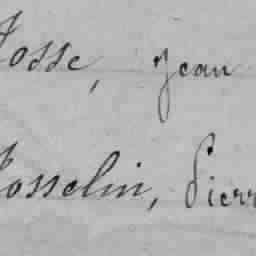 Josse, Jean
Josselin, Pierr